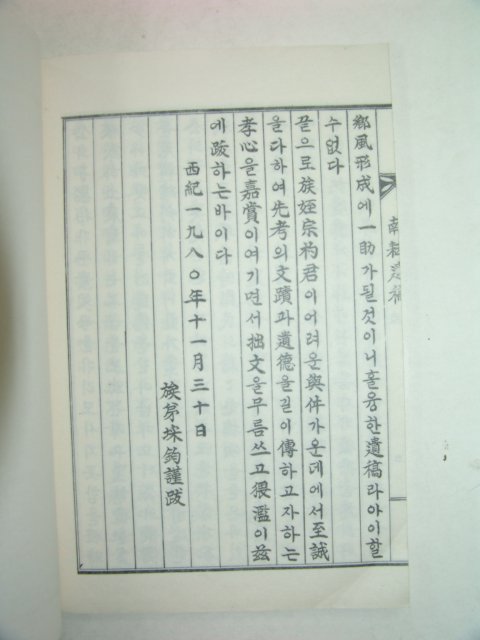 鄕風形成에一助가될것이니훌융한遺稿라아이할
수없다
끝으로族姪宗杓君이어려운與件가운데에서至誠
을다하여先考의文蹟과遺德을길이傳하고자하는
孝心을嘉賞이여기면서拙文을무릅쓰고猥濫이玆
에跋하는바이다
西紀一九八〇年十一月三十日
族弟埰鈞謹跋
南耘遺稿